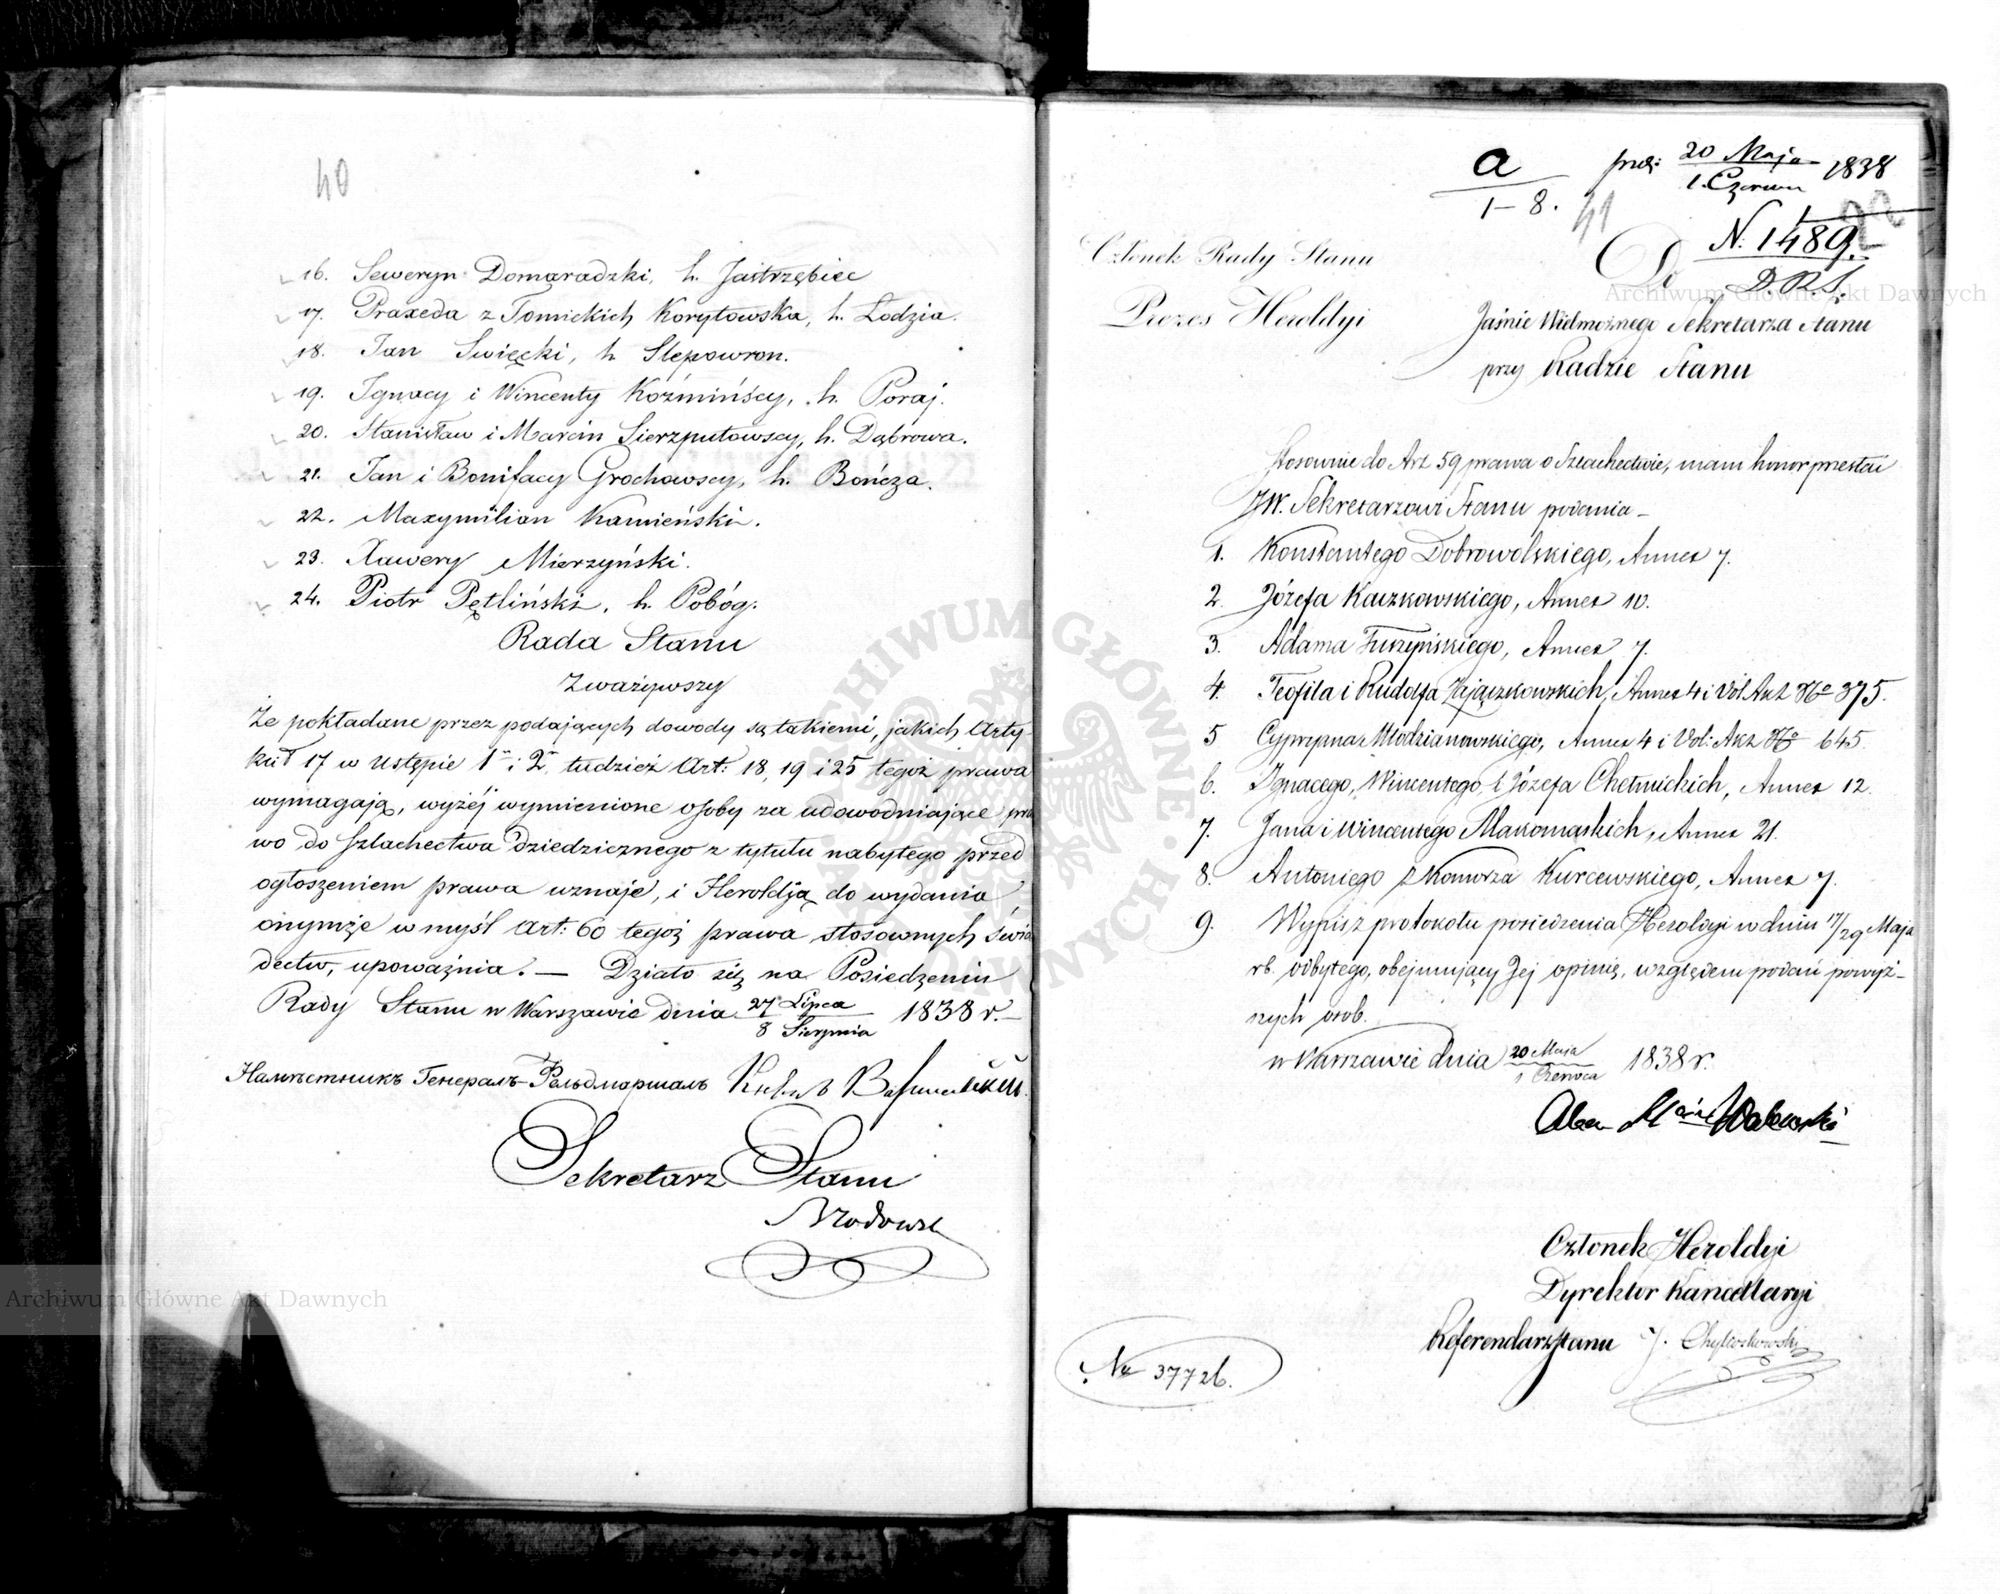 40
16. Seweryn Domaradzki, h. Jastrzębiec
17. Praxeda z Tomickich Korytowska, h. Łodzia.
18. Jan Swięcki, h Slepowron.
19. Ignacy i Wincenty Koźmińścy, h. Poraj.
20. Stanisław i Marcin Sierzputowscy, h. Dąbrowa.
21. Jan i Bonifacy Grochowscy, h. Bończa.
22. Maxymilian Kamieński.
23. Xawery Mierzyński.
24. Piotr Pętliński, h. Pobóg.
Rada Stanu
Zważywszy
Że pokładane przez podających dowody są takiemi, jakich Arty
kuł 17 w Ustępie 1m i 2m, tudzież Art: 18, 19 i 25 tegoż prawa
wymagają, wyżéj wymienione osoby za udowodniające pra
wo do szlachectwa dziedzicznego z tytułu nabytego przed
ogłoszeniem prawa uznaje, i Heroldją do wydania
onymże w myśl Art: 60 tegoż prawa stosownych świa
dectw, upoważnia. — Działo się na Posiedzeniu
Rady Stanu w Warszawie dnia 27 Lipca / 8 Sierpnia 1838 r. —
Намѣстникъ Генералъ-Фельдмаршалъ
Sekretarz Stanu
Archiwum Główne Akt Dawnych
a / 1-8.
41
20 Maja / 1. Czerwca 1838
N. 1489.
D.R.S.
Członek Rady Stanu
Prezes Heroldyi
Do
Archiwum Główne Akt Dawnych
Jaśnie Wielmożnego Sekretarza Stanu
przy Radzie Stanu
Stosownie do Art 59 prawa o Szlachectwie, mam honor przesłać
JW. Sekretarzowi Stanu podania –
1. Konstantego Dobrowolskiego, Annex 7.
2. Józefa Kaczkowskiego, Annex 10.
3. Adama Annex 7.
4. Teofila i Rudolfa Zajączkowskich, Annex 4 i Vol: Akt No 375.
5 Cypryana Młodzianowskiego, Annex 4 i Vol: Akt No 645.
6. Ignacego, Wincentego i Józefa Chełmickich, Annex 12.
7. Jana i Wincentego Makomaskich, Annex 21.
8. Antoniego Kurcewskiego, Annex 7.
9. Wypis z protokołu posiedzenia Heroldyi w dniu 17/29 Maja
rb. odbytego, obejmujący Jej opinię, względem podań powyż-
szych osób.
w Warszawie dnia 20 Maja / 1 Czerwca 1838 r.
Członek Heroldyi
Dyrektor Kancellaryi
Referendarz Stanu
No 37726.
ARCHIWUM GŁÓWNE AKT DAWNYCH